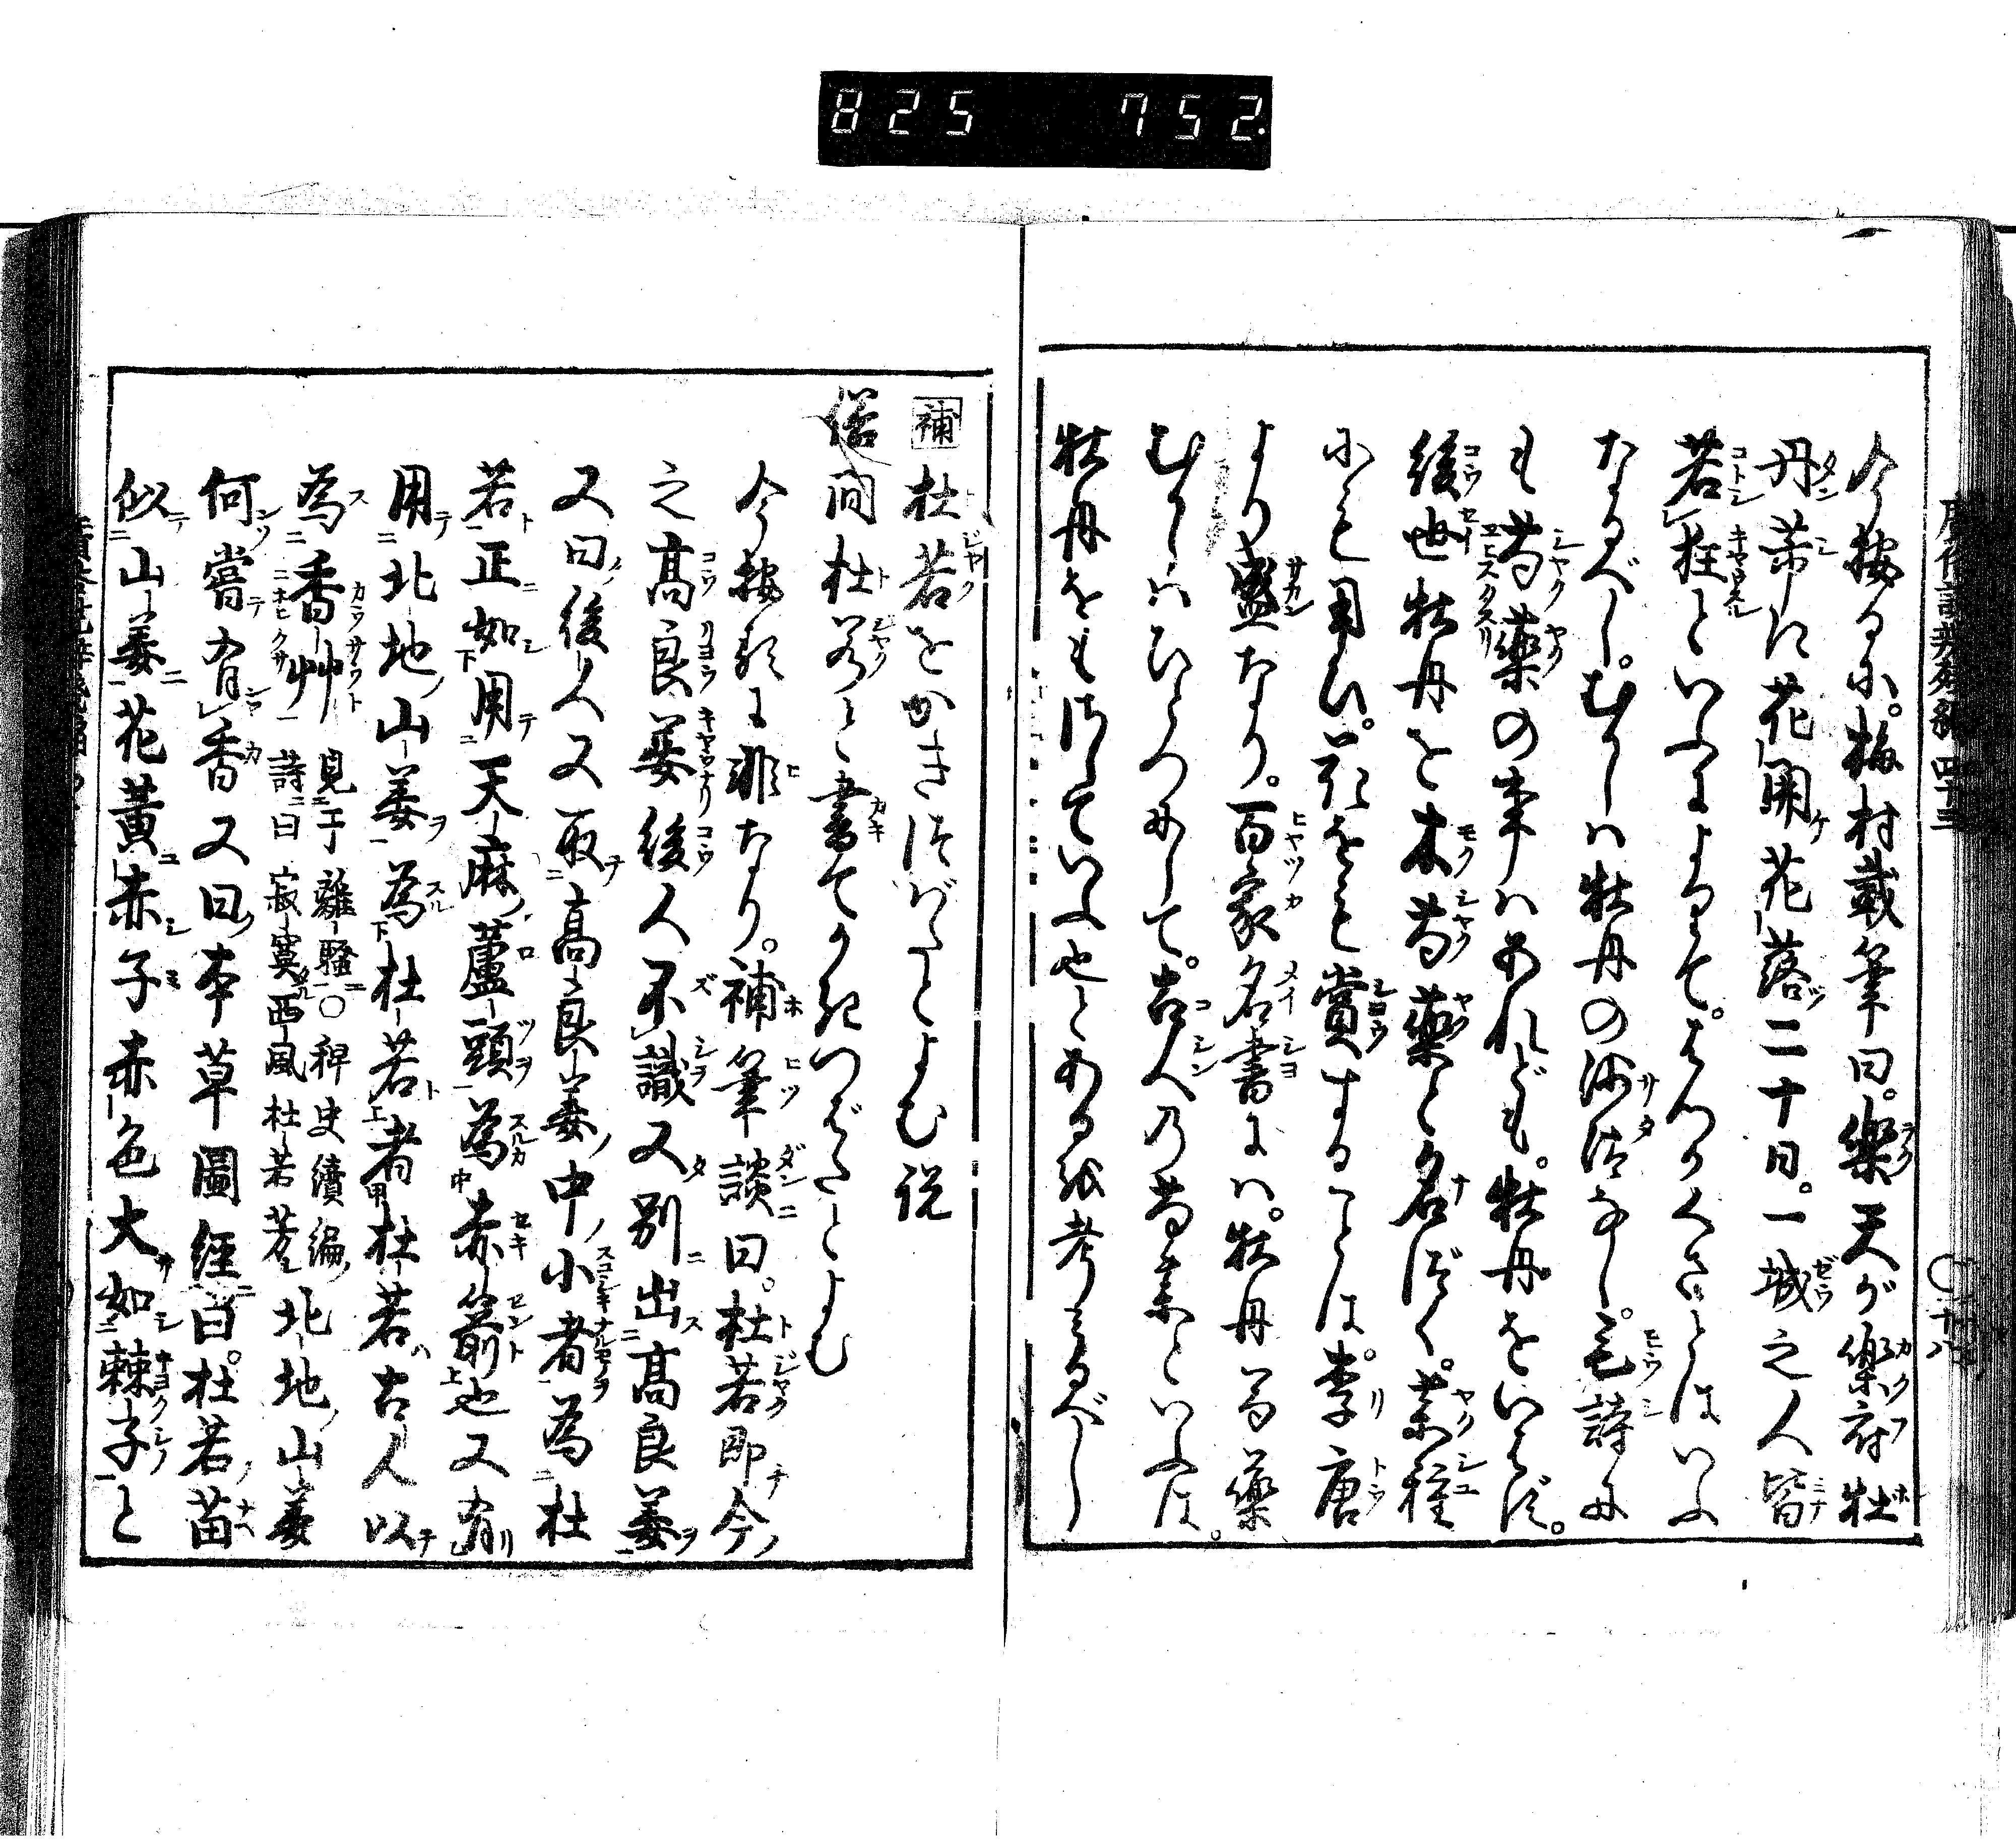 825 752.
今按るに。梅村載筆曰。樂天が樂府牡
丹芳に花開花落二十日。一城之人皆
若狂といふによりて。はつかくさとはいふ
なるべし。むかしハ牡丹の沙汰なし。毛詩に
も芍藥の事ハあれども。牡丹をいはず。
後世牡丹を木芍藥と名づく。藥種
にも用ひ。花をも賞することは。李唐
より盛なり。百家名書にハ。牡丹芍藥
むかしハひとつにして。古人乃芍藥といふは。
牡丹をもはしていふ也とある説考みるべし
補 杜若をかきつばたとよむ説
俗間杜若と書てかきつばたとよむ
今按るに非なり。補筆談曰。杜若即今
之高良姜後人不識又別出高良姜
又曰後人又取高良姜中小者為杜
若正如用天麻蘆頭為赤箭也又有
用北地山姜為杜若者杜若古人以
為香艸 見于離騷〇稗史續編 詩曰寂寞西風杜若芳 北地山姜
何嘗有香又曰本草圖經曰。杜若苗
似山姜花黃赤子赤色大如棘子と